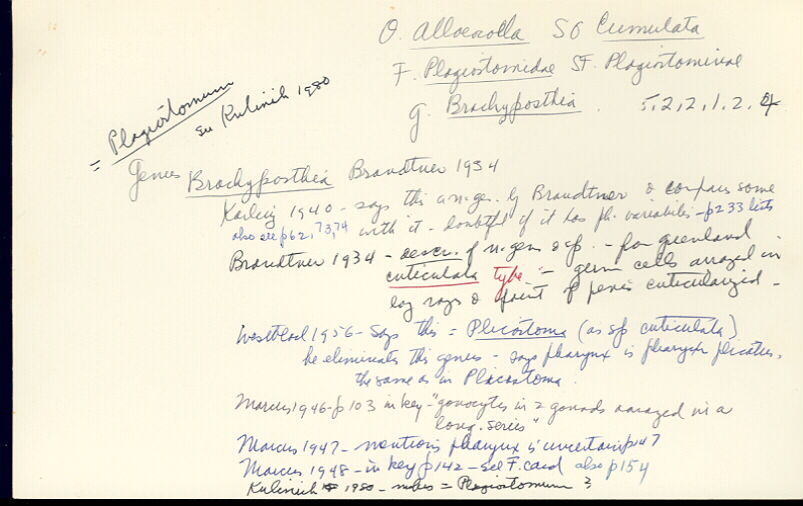 O. Alloeocoela SO Cumulata
F. Plagiostomidae SF. Plagiostominae
G. Brachyposthia. 5,2,2,1,2,
= Plagiostomum
see Kulinich 1980
Genus Brachyposthia Brandtner 1934
Karling 1940 - says this a n. gen. by Brandtner & compares some
also see p62, 73, 74 with it - doubtful if it has ph. variabilis - p233 lists
Brandtner 1934 - descr. of n. gen & sp. - for greenland
cuticulata type - germ cells arrazed in
long rays & point of penis cuticularized -
Westblad 1956 - Says this = Plicastoma (as sp cuticulata)
he eliminates this genus - says pharynx is pharynx plicatus,
the same as in Plicastoma.
Marcus 1946 - p103 in key - "gonocytes in 2 gonads arrazed in a
long. series"
Marcus 1947 - mentions pharynx is uncertain p47
Marcus 1948 - in key p142 - see F. card also p154
Kulinich 1980 - makes = Plagiostomum ?